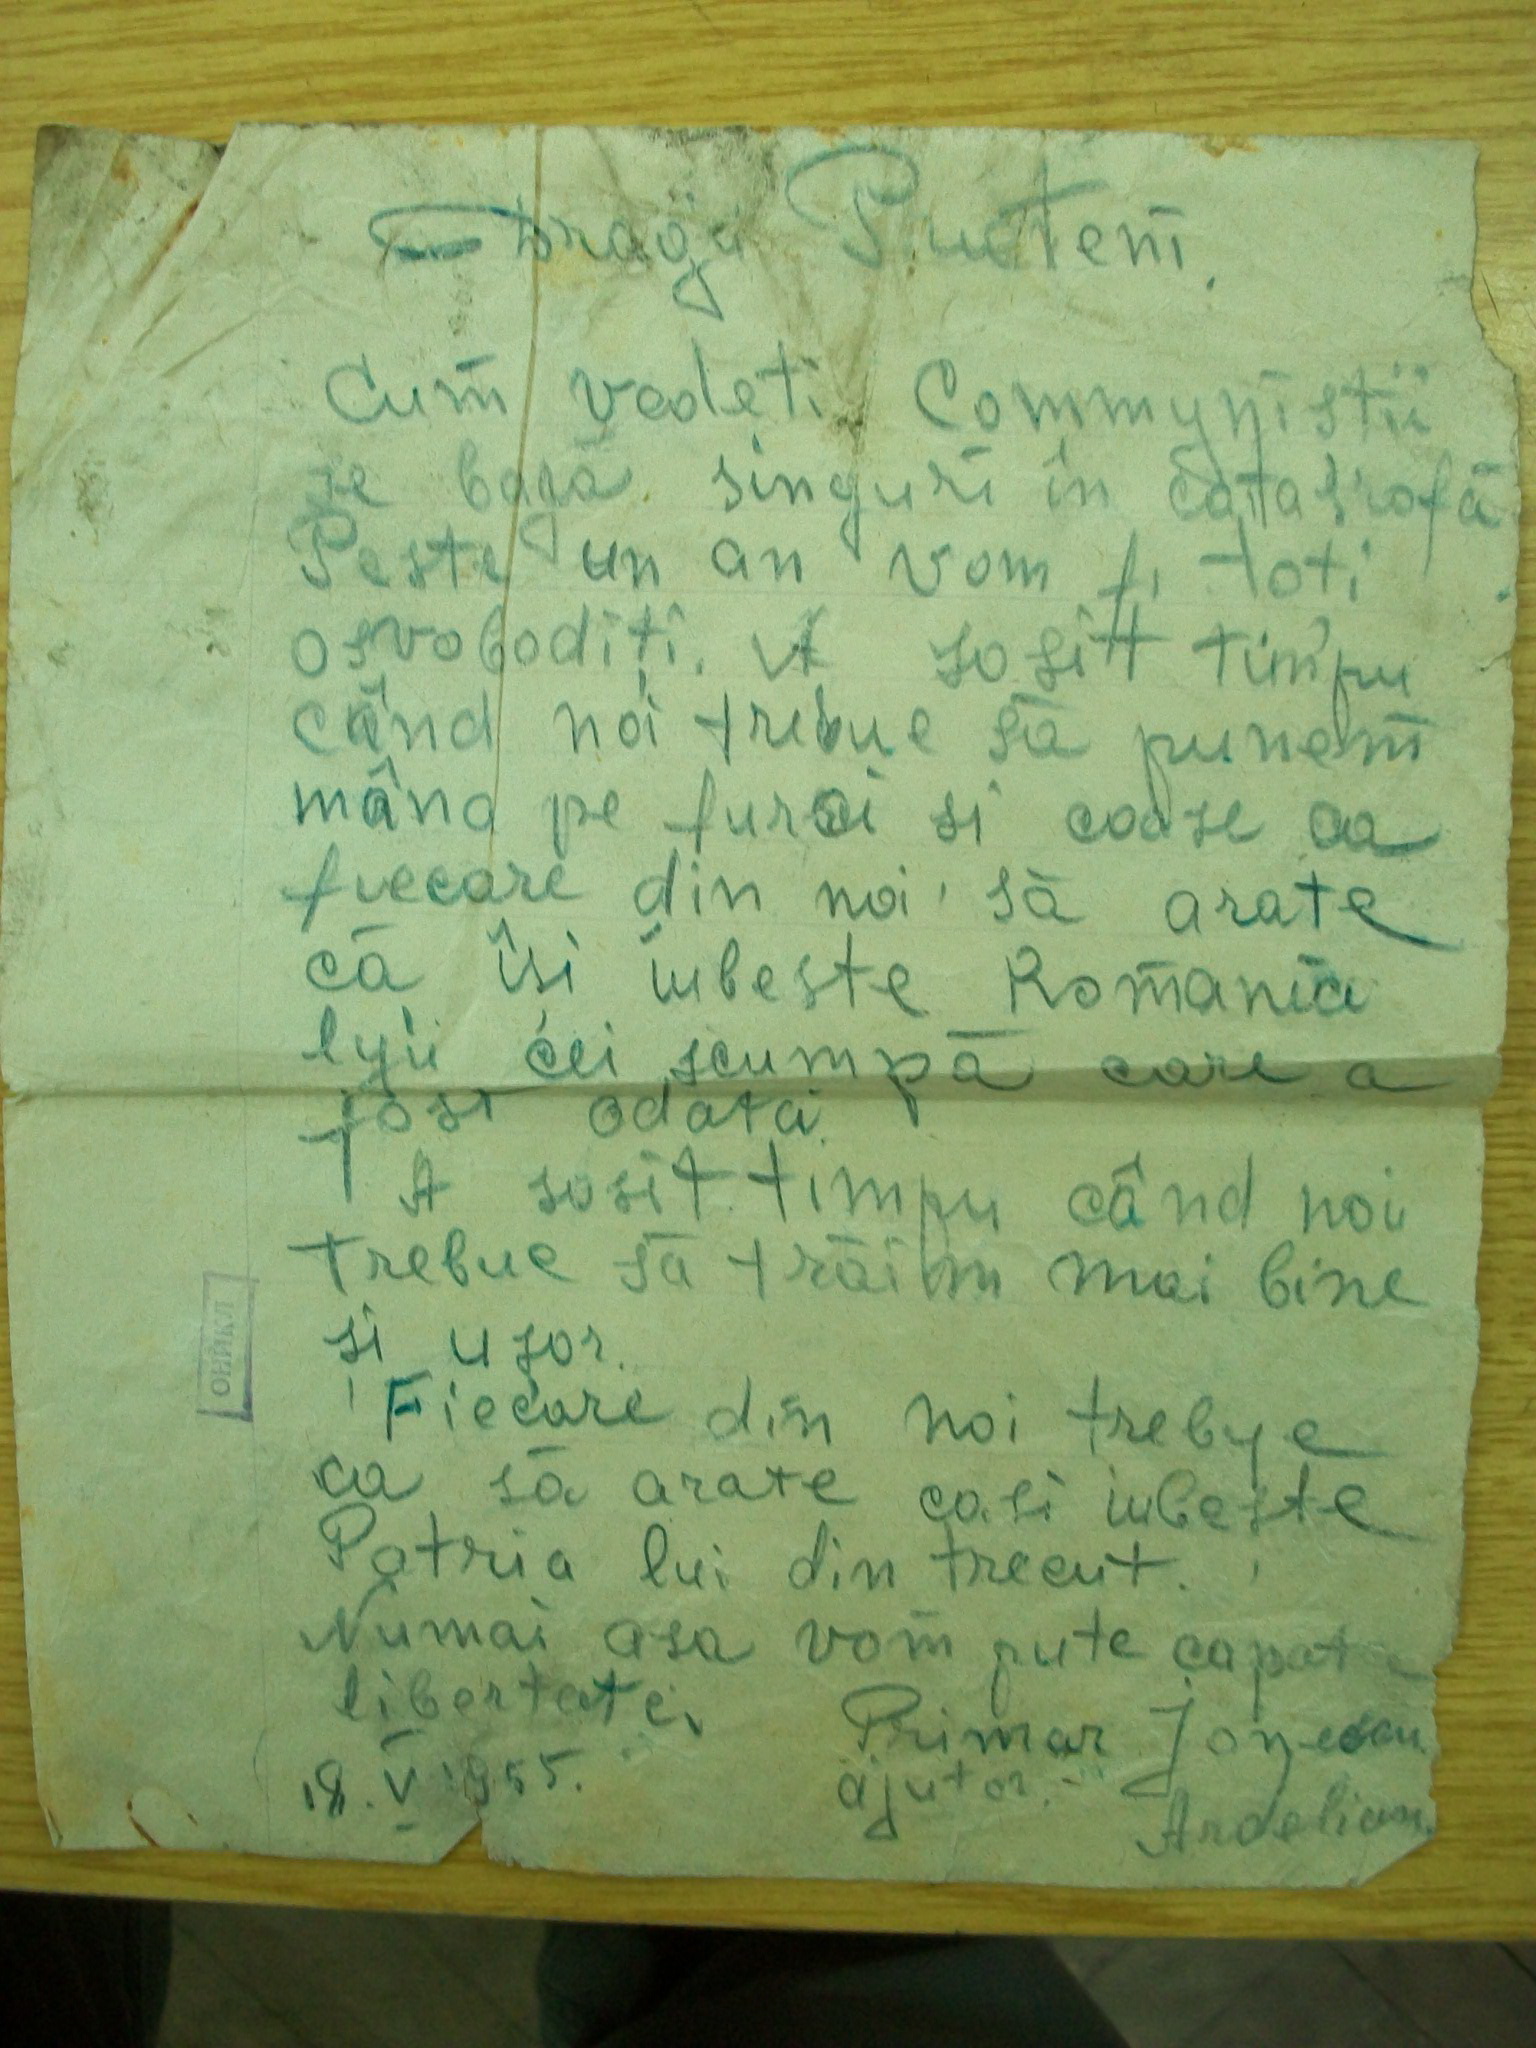 Dragii Prieteni.
Cum vedeți Commyniștii
se bagă singuri în catasrofă
Peste un an vom fi toți
osvobodiți. A sosit timpu
când noi trebue să punem
mâna pe furci si coase ca
fiecare din noi să arate
că îsi iubeste România
lyii cei scumpă care a
fost odata.
A sosit timpu când noi
trebue să trăim mai bine
și ușor.
Fiecare din noi trebye
ca să arate casi iubește
Patria lui din trecut.
Numai asa vom pute capata
libertate.
Primar Jonescu.
ajutor.
18. V 1955.
Ardelian.